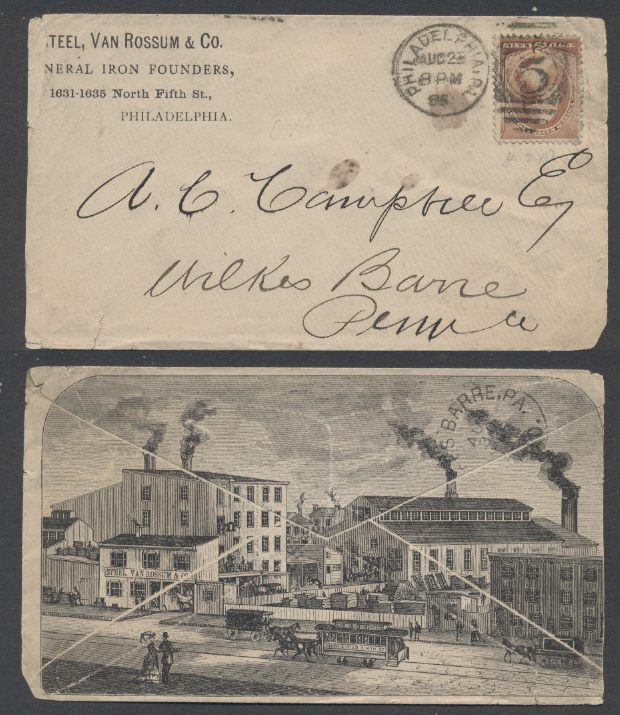 STEEL, VAN ROSSUM & CO.
NERAL IRON FOUNDERS,
1631-1635 North Fifth St.,
PHILADELPHIA.
PHILADELPHIA, PA.
AUG 23
8 PM
86
5
A. C. Campbell Esq
Wilkes Barre
Penna
S BARRE, PA.
STEEL, VAN ROSSUM & CO.